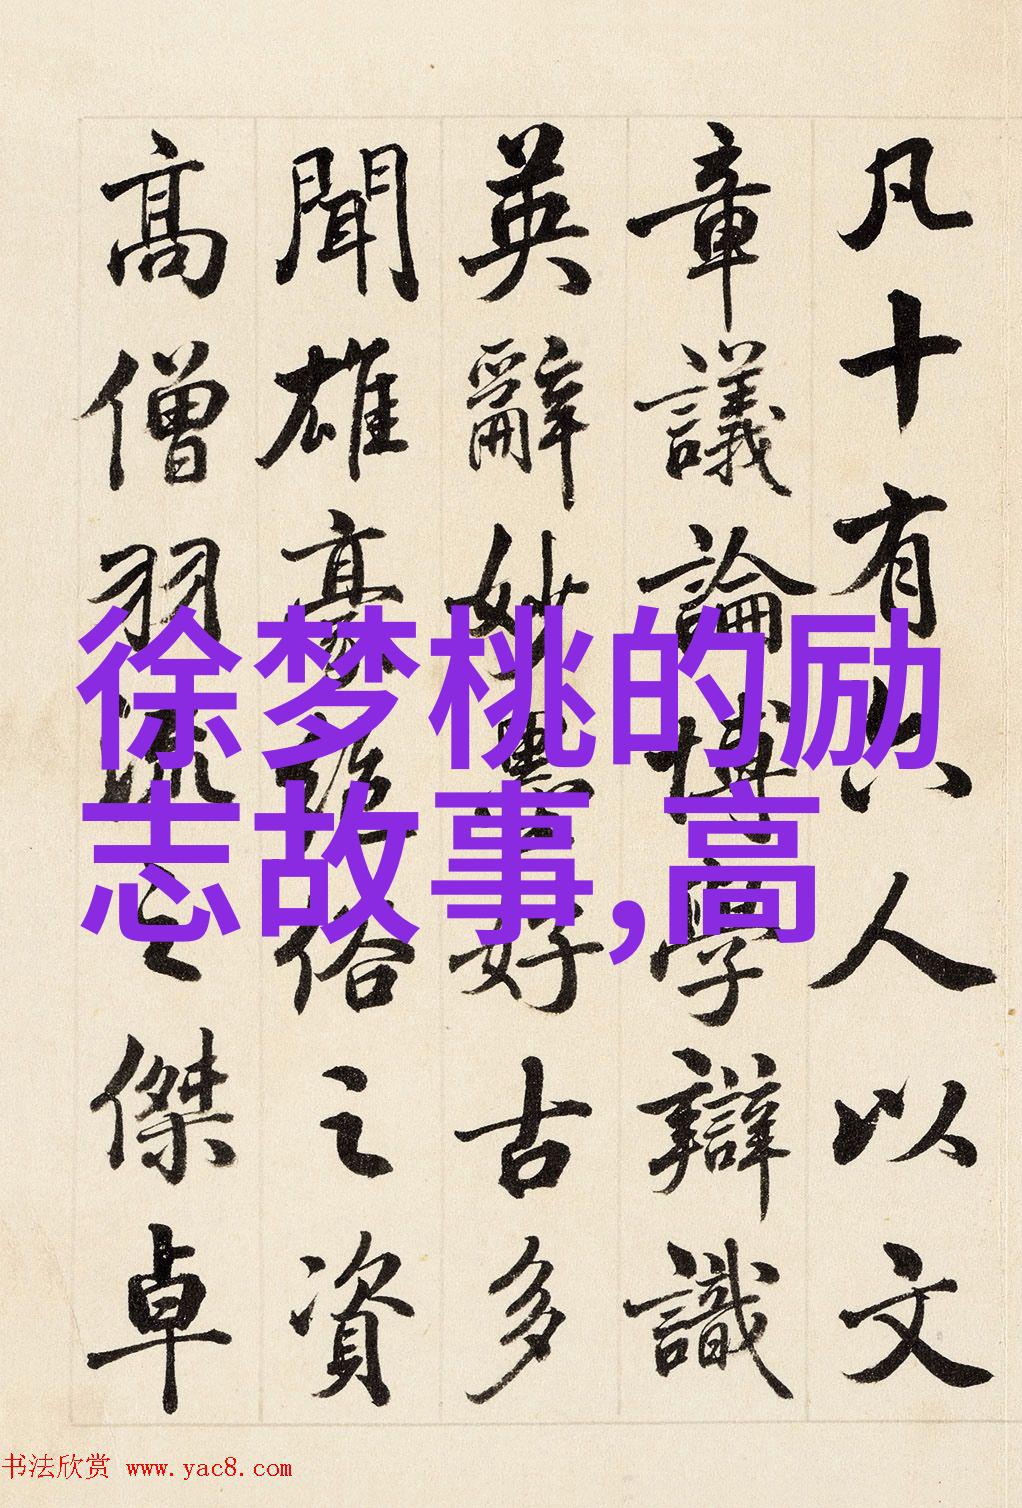 凡十有六人以文
章議論博學辯識
英辭妙墨好古多
聞雄豪絕俗之資
高僧羽流之傑卓
徐梦桃的励
志故事,高
书法欣赏 www.yac8.com